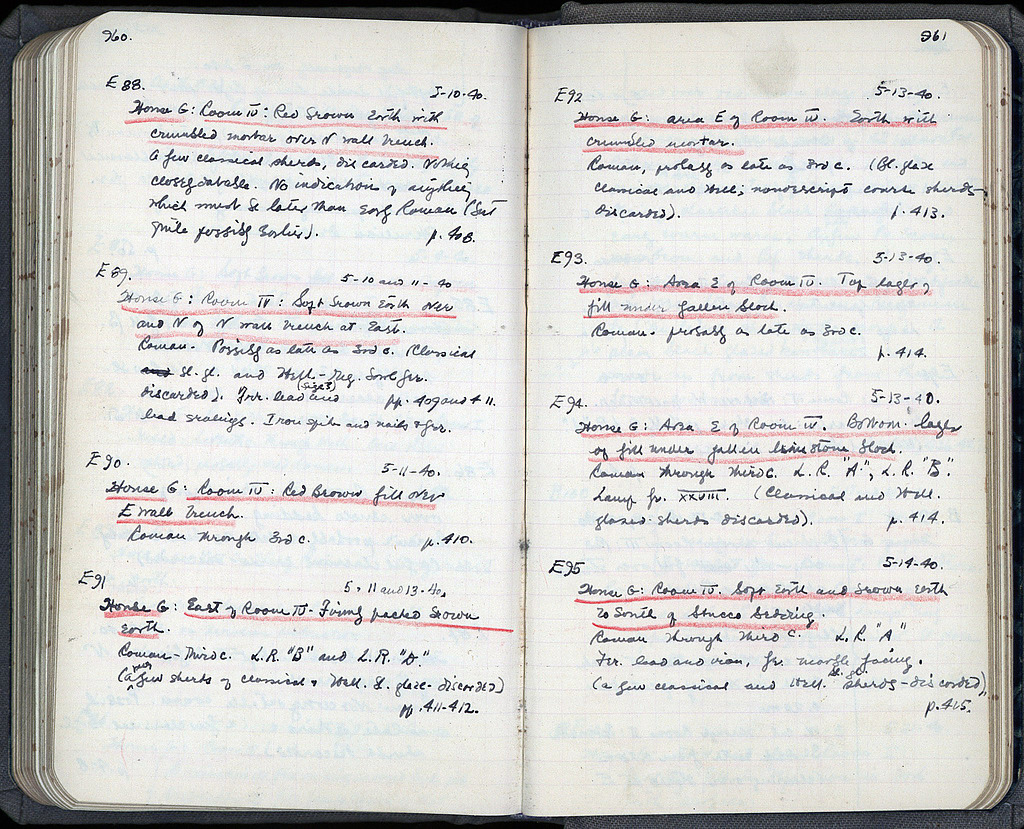 960.
E 88.
5-10-40.
House G: Room IV: Red Brown Earth with
crumbled mortar over N wall trench.
A few classical sherds, discarded. Nothing
closely datable. No indication of anything
which must be later than Early Roman (but
quite possibly Earlier).
p. 408.
E 89.
5-10 and 11-40
House G: Room IV: Soft Brown Earth over
and N of N wall trench at East.
Roman. Possibly as late as 3rd c. (Classical
bl. gl. and Hell.
discarded). Frr. lead and
pp. 409 and 411.
lead Iron spike and nails & frr.
E 90.
5-11-40.
House G: Room IV: Red Brown fill over
E wall trench.
Roman through 3rd c.
p. 410.
E 91
5-11 and 13-40.
House G: East of Room IV - Firmly packed Brown
Earth.
Roman - Third c. L.R. "B" and L.R. "D."
(A very few sherds of classical & Hell. bl. glaze - discarded)
pp. 411-412.
961
E 92
5-13-40.
House G: area E of Room IV. Earth with
crumbled mortar.
Roman, probably as late as 3rd c. (Bl. glaze
classical and Hell; nondescript coarse sherds,
discarded).
p. 413.
E 93.
5-13-40.
House G: Area E of Room IV. Top layer of
fill under fallen block.
Roman - probably as late as 3rd c.
p. 414.
E 94.
5-13-40.
House G: Area E of Room IV. Bottom layer
of fill under fallen limestone block.
Roman through Third c. L.R. "A"; L.R. "B".
Lamp fr. XXVIII. (Classical and Hell.
glazed sherds discarded).
p. 414.
E 95
5-14-40.
House G: Room IV. Soft Earth and Brown Earth
to South of Stucco Bedding.
Roman through Third c. L.R. "A"
Frr. lead and iron, fr. marble facing.
(a few classical and Hell. bl. gl. sherds - discarded),
p. 415.